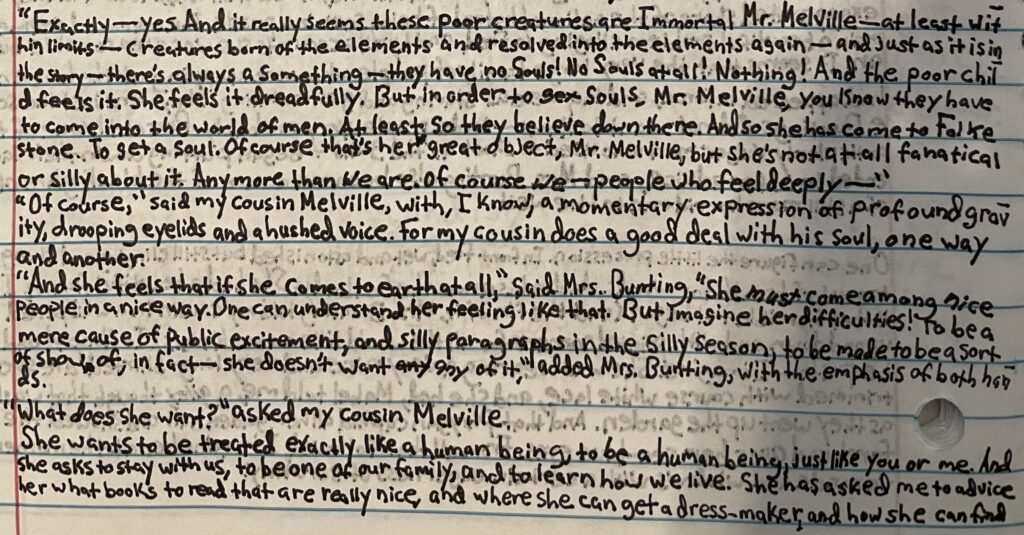 "Exactly—yes And it really seems these poor creatures are Immortal Mr. Melville—at least wit
hin limits— creatures born of the elements and resolved into the elements again— and just as it is in
the story—there's always a something—they have no Souls! No Souls at all! Nothing! And the poor chil
d feels it. She feels it dreadfully. But in order to get souls, Mr. Melville, you know they have
to come into the world of men. At least so they believe down there. And so she has come to Folke
stone. To get a soul. Of course that's her great object, Mr. Melville, but she's not at all fanatical
or silly about it. Any more than we are. Of course we—people who feel deeply—"
"Of course," said my cousin Melville, with, I know, a momentary expression of profound grav
ity, drooping eyelids and a hushed voice. For my cousin does a good deal with his soul, one way
and another.
"And she feels that if she comes to earth at all," said Mrs. Bunting, "she must come among nice
people in a nice way. One can understand her feeling like that. But Imagine her difficulties! To be a
mere cause of public excitement, and silly paragraphs in the silly season, to be made to be a sort
of show of, in fact— she doesn't want any of it," added Mrs. Bunting, with the emphasis of both han
ds.
"What does she want?" asked my cousin Melville.
She wants to be treated exactly like a human being, to be a human being, just like you or me. And
she asks to stay with us, to be one of our family, and to learn how we live. She has asked me to advice
her what books to read that are really nice, and where she can get a dress-maker, and how she can find